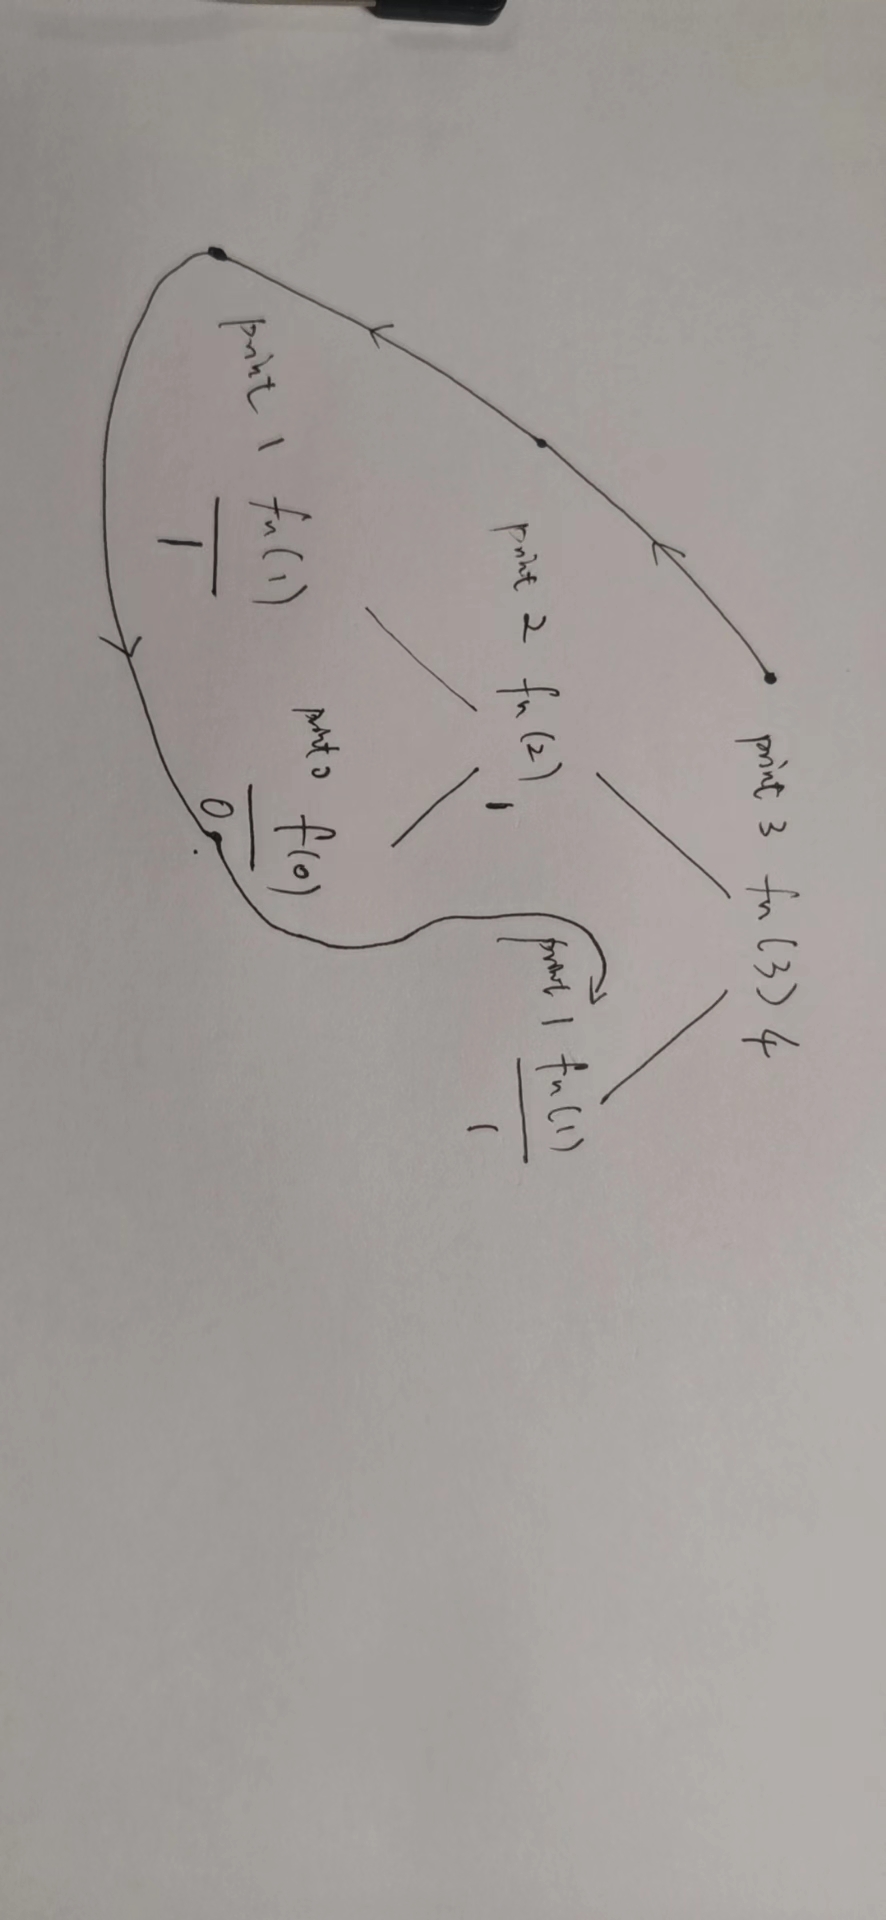 print 3 fn(3) 4
print 2 fn(2)
1
print 1 fn(1)
1
print 0 f(0)
0
print 1 fn(1)
1